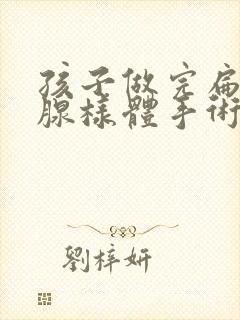 孩子做完扁
腺樣體手術
劉梓妍